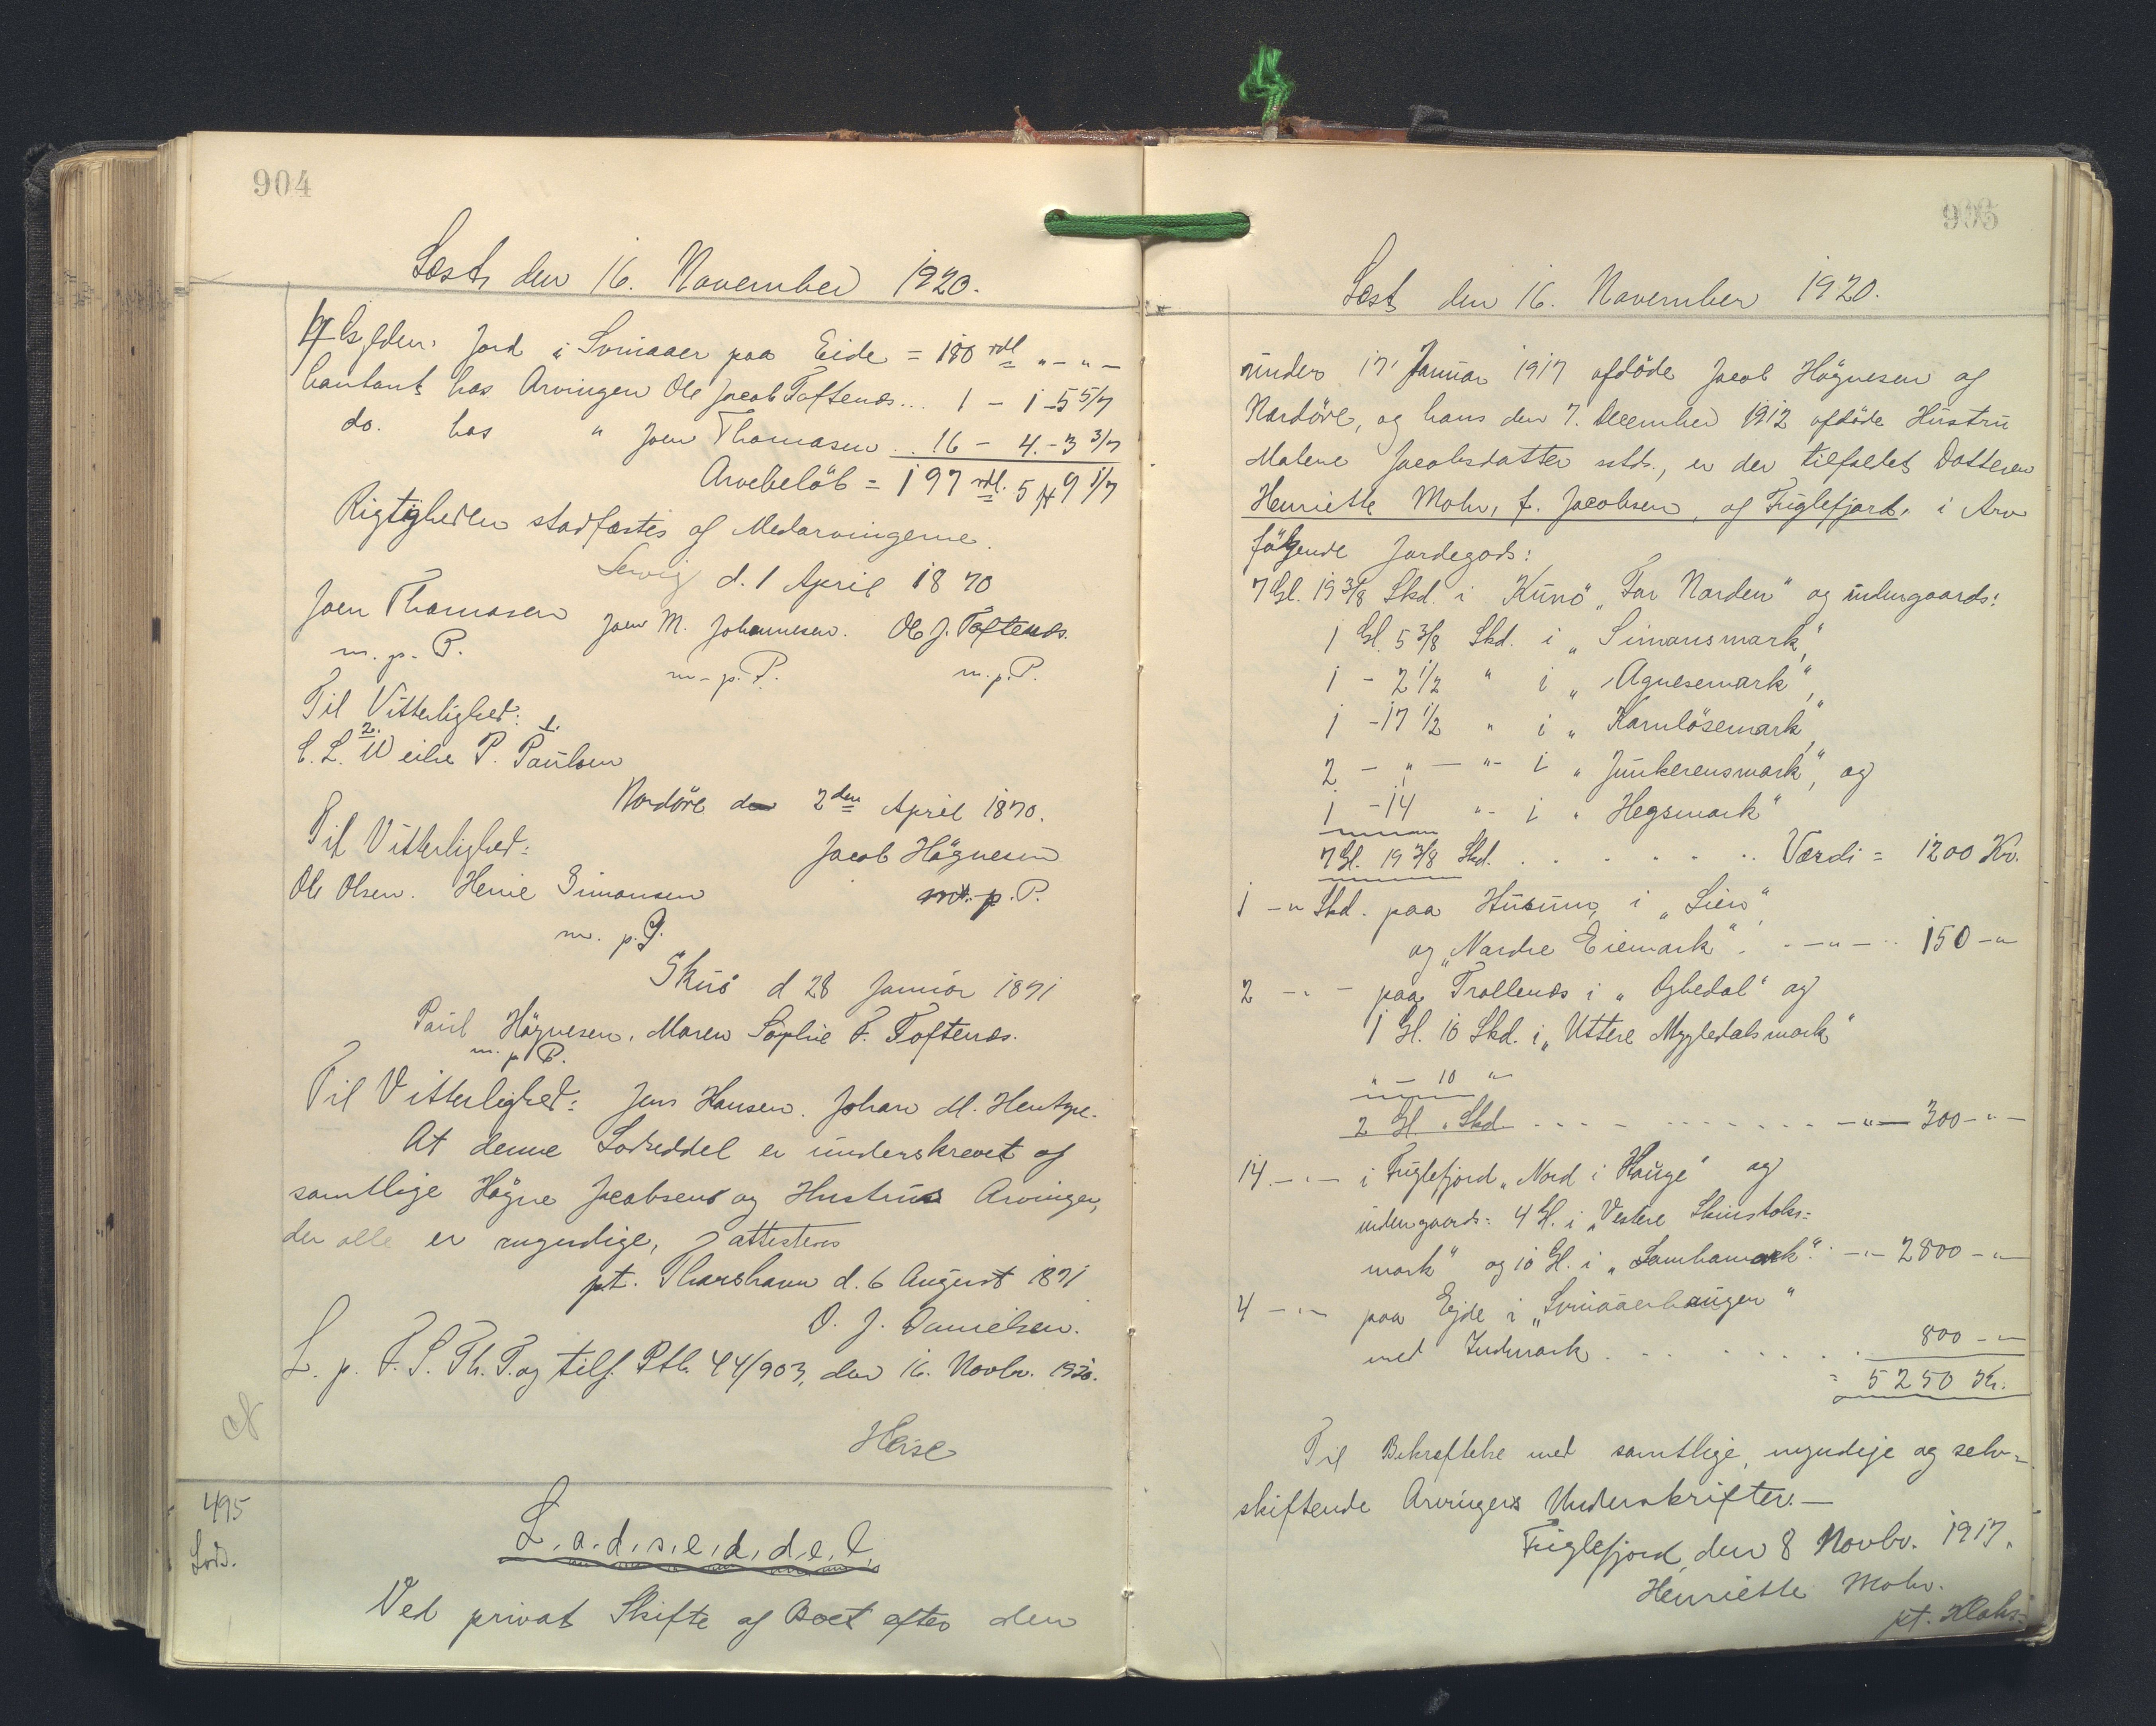 904
Læst den 16. November 1920.
4 Gylden Jord i Svinaaer paa Eide = 180 rdl " - " -
Contant hos Arvingen Ole Jacob Toftenæs... 1 - 1 - 5 5/7
do. hos " Joen Thomasen .. 16 - 4 - 3 3/7
Arvebeløb = 197 rdl. 5 # 9 1/7
Rigtigheden stadfæstes af Medarvingerne.
d. 1 April 1870
Joen Thomasen Joen M. Johannesen. Ole J. Toftenæs.
m. p. P. m. p. P. m. p. P.
Til Vitterlighed:
2. 1.
C. L. Weihe P. Paulsen
Nordöre den 2den April 1870.
Til Vitterlighed: Jacob Högnesen
Ole Olsen. Henie Simonsen m. p. P.
m. p. G.
Skuö d 28 Januar 1871
Paul Högnesen, Maren Sophie F. Toftenæs.
m. p. P.
Til Vitterlighed: Jens Hansen. Johan M. Hentze.
At denne Lodseddel er underskrevet af
samtlige Högne Jacobsens og Hustrus Arvinger,
der alle er myndige, attesteres
pt. Thorshavn d. 6 August 1871
O. J. Danielsen.
L. p. F. S. Th. T. og tilf. Ptb. 44/903, den 16. Novbr. 1920.
Heise
495
Lods.
L.o.d.s.e.d.d.e.l.
Ved privat Skifte af Boet efter den
905
Læst den 16. November 1920.
under 17. Januar 1917 afdöde Jacob Högnesen af
Nordöre, og hans den 7. December 1912 afdöde Hustru
Malene Jacobsdatter sstds., er der tilfaldet Datteren
Henriette Mohr, f. Jacobsen, af Fuglefjord, i Arv
fölgende Jordegods:
7 Gl. 19 3/8 Skd. i Kunö "Far Norden" og indengaards:
1 Gl. 5 3/8 Skd. i "Simansmark",
1 - 2 1/2 " i "Agnesemark",
1 - 17 1/2 " i "Kornlösemark",
2 - " - " - i "Junkerensmark", og
1 - 14 " - i "Hegsmark"
7 Gl. 19 3/8 Skd. . . . . . . . . Værdi = 1200 Kr.
1 - " Skd. paa Husum, i "Lien"
og "Nordre Eiemark". . - " - .. 150 - "
2 - " - paa Trollenæs i "Ogbedal" og
1 Gl. 10 Skd. i "Uttere Mygledalsmark"
" - 10 "
2 Gl. " Skd . . . . . . . . . . . - " - 300 - " -
14 - " - i Fuglefjord "Nord i Hauge" og
indengaards: 4 Gl. i "Vestere Skiustoks=
mark" og 10 Gl. i "Lambamark". - " - 2800 - "
4 - " - paa Ejde i "Svinaaerhaugen"
med Indmark . . . . . . . . 800 - "
= 5250 Kr.
Til Bekræftelse med samtlige, myndige og selv=
skiftende Arvingers Underskrifter. -
Fuglefjord, den 8 Novbr. 1917.
Henriette Mohr.
pt. Klaks=